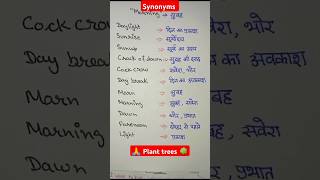 Synonyms
"Morning → सुबह
Daylight → दिन का प्रकाश
Sunrise → सूर्योदय
Sunup → सूर्य का उदय
Crack of dawn → सुबह की
Cock crow → सवेरा, भोर
Day break → दिन का
Morn → सुबह
Morning → सुबह, सवेरा
Dawn → भोर, प्रभात
Forenoon → दोपहर से पहले
Light → प्रकाश
🙏 Plant trees 🌳
Cock crow
Day break
Morn
Morning
Dawn
रा, भोर
का अवकाश
बह
, सवेरा
, प्रभात